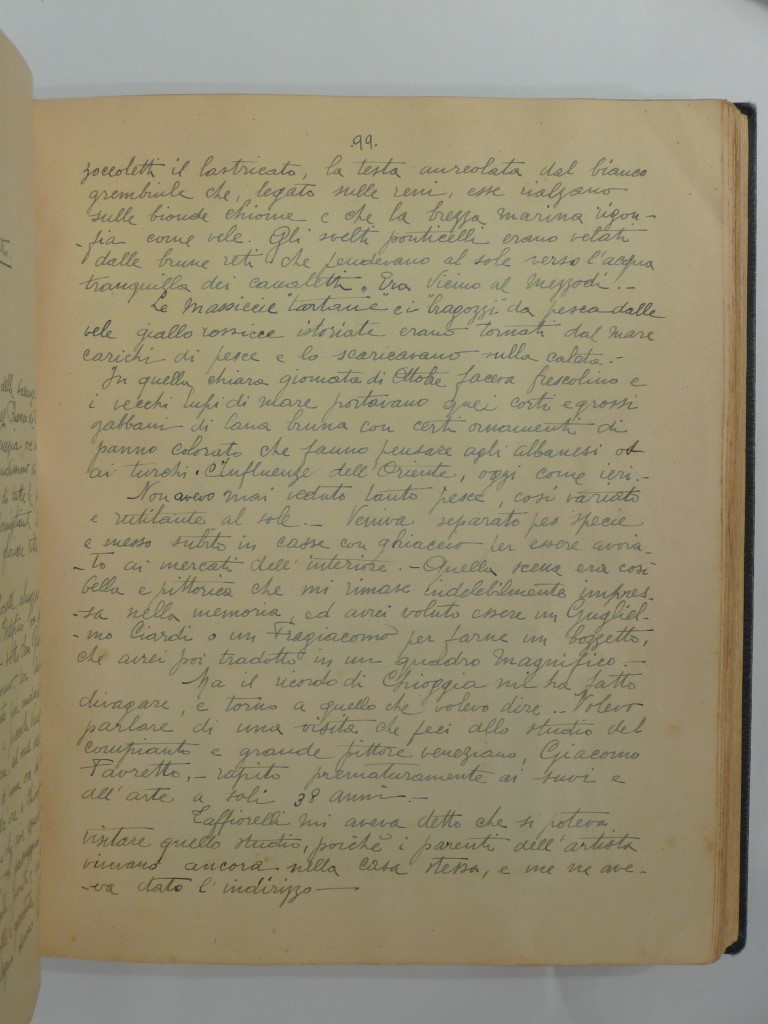 .99.
zoccoletti il lastricato, la testa aureolata dal bianco
grembiule che, legato sulle reni, esse rialzano
sulle bionde chiome e che la brezza marina rigon-
-fia come vele. Gli svelti ponticelli erano velati
dalle brune reti che pendevano al sole verso l'acqua
tranquilla dei canaletti. Era vicino al Mezzodì.-
Le Massiccie "tartane" e i "bragozzi" da pesca dalle
vele giallo rossicce istoriate erano tornati dal mare
carichi di pesce e lo scaricavano sulla calata.-
In quella chiara giornata di Ottobre faceva frescolino e
i vecchi lupi di mare portavano quei corti e grossi
gabbani di lana bruna con certi ornamenti di
panno colorato che fanno pensare agli albanesi od
ai turchi. Influenze dell'Oriente, oggi come ieri.-
Non avevo mai veduto tanto pesce, così variato
e rutilante al sole.- Veniva separato per specie
e messo subito in casse con ghiaccio per essere avvia-
-to ai mercati dell'interiore.- Quella scena era così
bella e pittorica che mi rimase indelebilmente impres-
-sa nella memoria, ed avrei voluto essere un Gugliel-
-mo Ciardi o un Fragiacomo per farne un bozzetto,
che avrei poi tradotto in un quadro magnifico.-
Ma il ricordo di Chioggia mi ha fatto
divagare, e torno a quello che volevo dire.- Volevo
parlare di una visita che feci allo studio del
compianto e grande pittore veneziano, Giacomo
Favretto,- rapito prematuramente ai suoi e
all'arte a soli 38 anni.-
Taffiorelli mi aveva detto che si poteva
visitare quello studio, poichè i parenti dell'artista
vivevano ancora nella casa stessa, e me ne ave-
-va dato l'indirizzo-